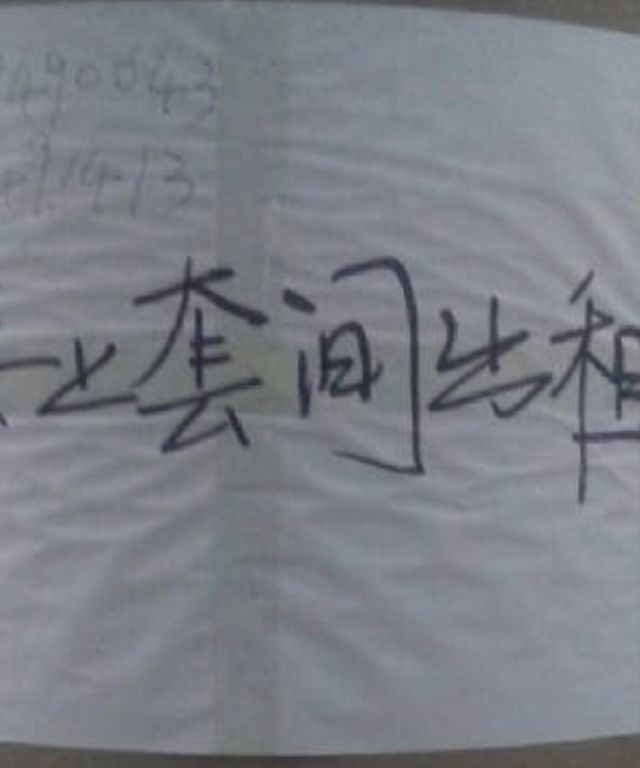 490043
1413
套间出租